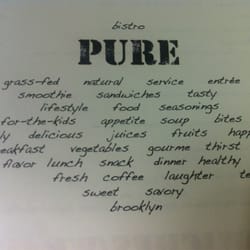 bistro
PURE
grass-fed natural service entrée
smoothie sandwiches tasty
lifestyle food seasonings
for-the-kids appetite soup bites
delicious juices fruits
vegetables gourme thirst
flavor lunch snack dinner healthy
fresh coffee laughter
sweet savory
brooklyn